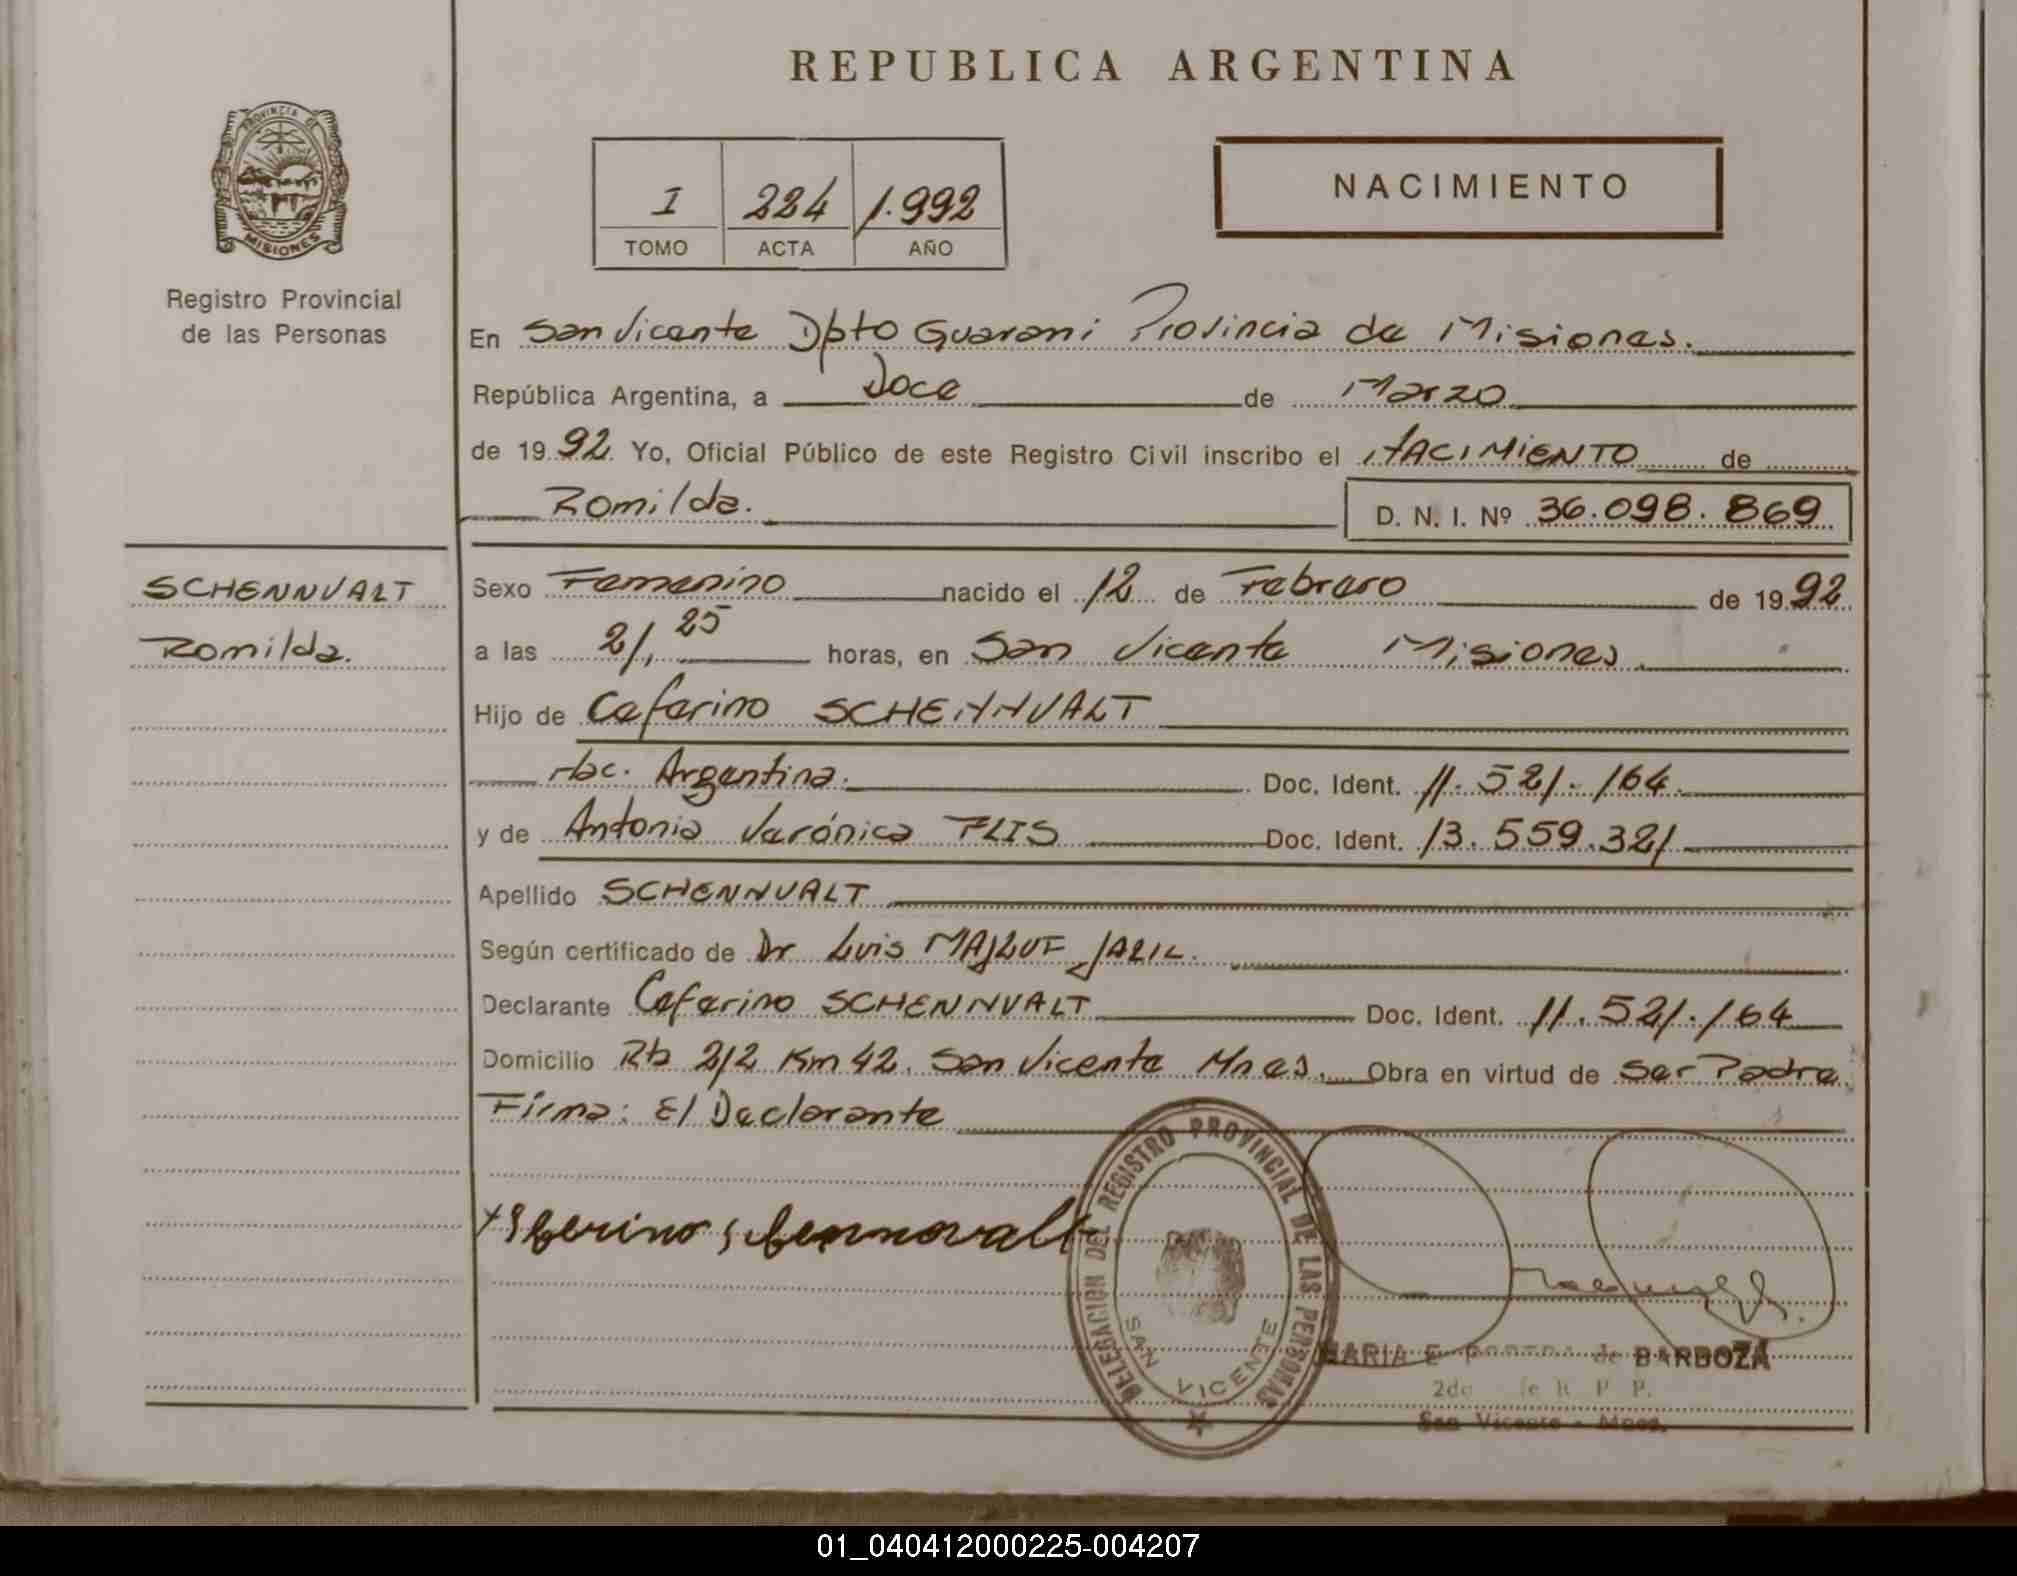 REPUBLICA ARGENTINA
PROVINCIA DE
MISIONES
Registro Provincial
de las Personas
I 224 1.992
TOMO ACTA AÑO
NACIMIENTO
En San Vicente Dpto Guarani Provincia de Misiones.
República Argentina, a Doce de Marzo
de 1992 Yo, Oficial Público de este Registro Civil inscribo el NACIMIENTO de
Romilda. D. N. I. Nº 36.098.869
SCHENNVALT
Romilda.
Sexo Femenino nacido el 12 de Febrero de 1992
a las 21,25 horas, en San Vicente Misiones.
Hijo de Ceferino SCHENNVALT
Nac. Argentina. Doc. Ident. 11.521.164.
y de Antonia Verónica FLIS Doc. Ident. 13.559.321
Apellido SCHENNVALT
Según certificado de Dr Luis MAJLUF JALIL.
Declarante Ceferino SCHENNVALT Doc. Ident. 11.521.164
Domicilio Rta 212 Km 42. San Vicente Mnes. Obra en virtud de Ser Padre
Firma: El Declarante
DELEGACION DEL REGISTRO PROVINCIAL DE LAS PERSONAS
SAN VICENTE
MARIA E. de BARBOZA
San Vicente - Mnes.
01_040412000225-004207